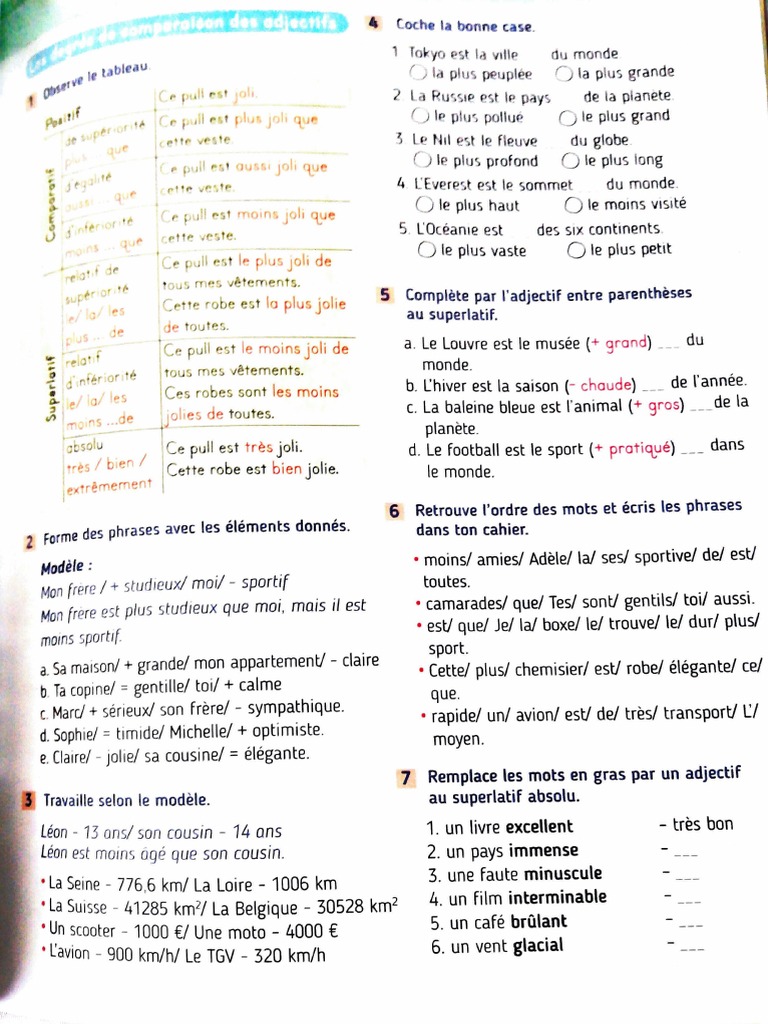 Les degrés de comparaison des adjectifs
1 Observe le tableau.
Positif
Ce pull est joli.
Comparatif
de supériorité
plus ... que
Ce pull est plus joli que
cette veste.
d'égalité
aussi ... que
Ce pull est aussi joli que
cette veste.
d'infériorité
moins ... que
Ce pull est moins joli que
cette veste.
Superlatif
relatif de
supériorité
le/ la/ les
plus ... de
Ce pull est le plus joli de
tous mes vêtements.
Cette robe est la plus jolie
de toutes.
relatif
d'infériorité
le/ la/ les
moins ...de
Ce pull est le moins joli de
tous mes vêtements.
Ces robes sont les moins
jolies de toutes.
absolu
très / bien /
extrêmement
Ce pull est très joli.
Cette robe est bien jolie.
2 Forme des phrases avec les éléments donnés.
Modèle :
Mon frère / + studieux/ moi/ - sportif
Mon frère est plus studieux que moi, mais il est
moins sportif.
a. Sa maison/ + grande/ mon appartement/ - claire
b. Ta copine/ = gentille/ toi/ + calme
c. Marc/ + sérieux/ son frère/ - sympathique.
d. Sophie/ = timide/ Michelle/ + optimiste.
e. Claire/ - jolie/ sa cousine/ = élégante.
3 Travaille selon le modèle.
Léon - 13 ans/ son cousin - 14 ans
Léon est moins âgé que son cousin.
• La Seine - 776,6 km/ La Loire - 1006 km
• La Suisse - 41285 km²/ La Belgique - 30528 km²
• Un scooter - 1000 €/ Une moto - 4000 €
• L'avion - 900 km/h/ Le TGV - 320 km/h
4 Coche la bonne case.
1 Tokyo est la ville du monde.
la plus peuplée la plus grande
2 La Russie est le pays de la planète.
le plus pollué le plus grand
3 Le Nil est le fleuve du globe.
le plus profond le plus long
4. L'Everest est le sommet du monde.
le plus haut le moins visité
5. L'Océanie est des six continents.
le plus vaste le plus petit
5 Complète par l'adjectif entre parenthèses
au superlatif.
a. Le Louvre est le musée (+ grand) ___ du
monde.
b. L'hiver est la saison (- chaude) ___ de l'année.
c. La baleine bleue est l'animal (+ gros) ___de la
planète.
d. Le football est le sport (+ pratiqué) ___ dans
le monde.
6 Retrouve l'ordre des mots et écris les phrases
dans ton cahier.
• moins/ amies/ Adèle/ la/ ses/ sportive/ de/ est/
toutes.
• camarades/ que/ Tes/ sont/ gentils/ toi/ aussi.
• est/ que/ Je/ la/ boxe/ le/ trouve/ le/ dur/ plus/
sport.
• Cette/ plus/ chemisier/ est/ robe/ élégante/ ce/
que.
• rapide/ un/ avion/ est/ de/ très/ transport/ L'/
moyen.
7 Remplace les mots en gras par un adjectif
au superlatif absolu.
1. un livre excellent - très bon
2. un pays immense - ___
3. une faute minuscule - ___
4. un film interminable - ___
5. un café brûlant - ___
6. un vent glacial - ___